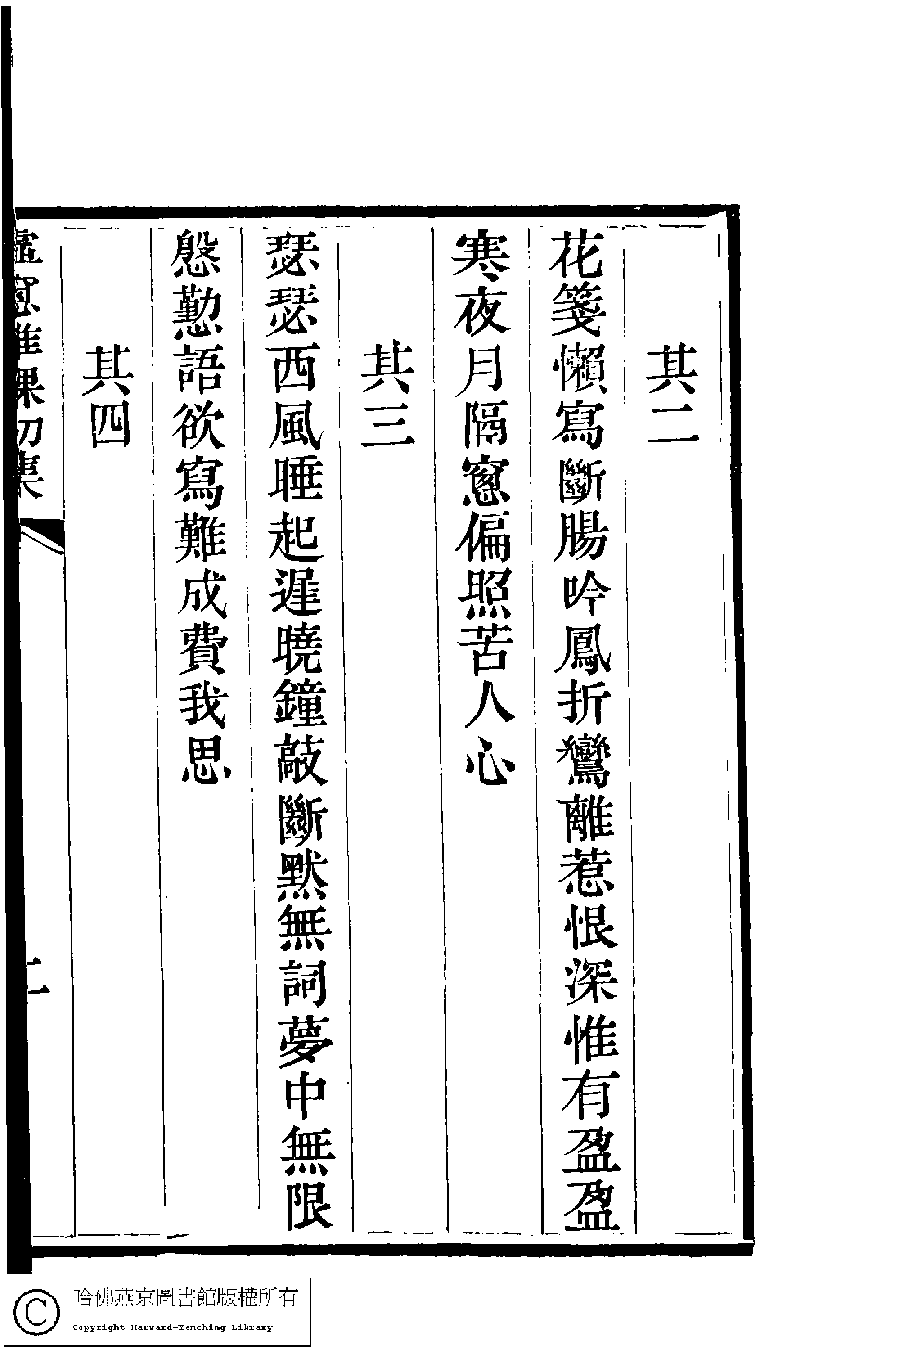 其二
花箋懶寫斷腸吟鳳折鸞離惹恨深惟有盈盈
寒夜月隔窻偏照苦人心
其三
瑟瑟西風睡起遲曉鐘敲斷默無詞夢中無限
慇懃語欲寫難成費我思
其四
虛窻雅課初集
二
哈佛燕京圖書館版權所有
Copyright Harvard-Yenching Library